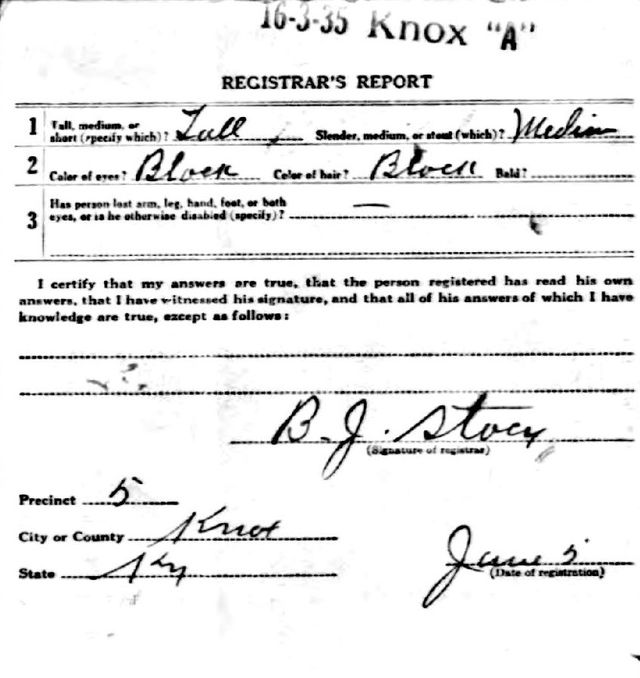 16-3-35 Knox "A"
REGISTRAR'S REPORT
1 Tall, medium, or short (specify which)? Tall Slender, medium, or stout (which)? Medium
2 Color of eyes? Black Color of hair? Black Bald?
3 Has person lost arm, leg, hand, foot, or both eyes, or is he otherwise disabled (specify)? —
I certify that my answers are true, that the person registered has read his own
answers, that I have witnessed his signature, and that all of his answers of which I have
knowledge are true, except as follows:
B. J. Stacy
(Signature of registrar)
Precinct 5
City or County Knox
State Ky
June 5
(Date of registration)